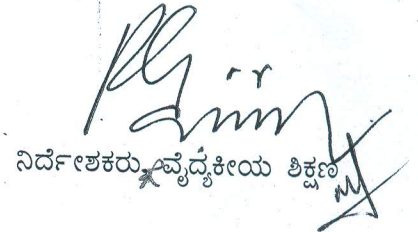 ನಿರ್ದೇಶಕರು, ವೈದ್ಯಕೀಯ ಶಿಕ್ಷಣ